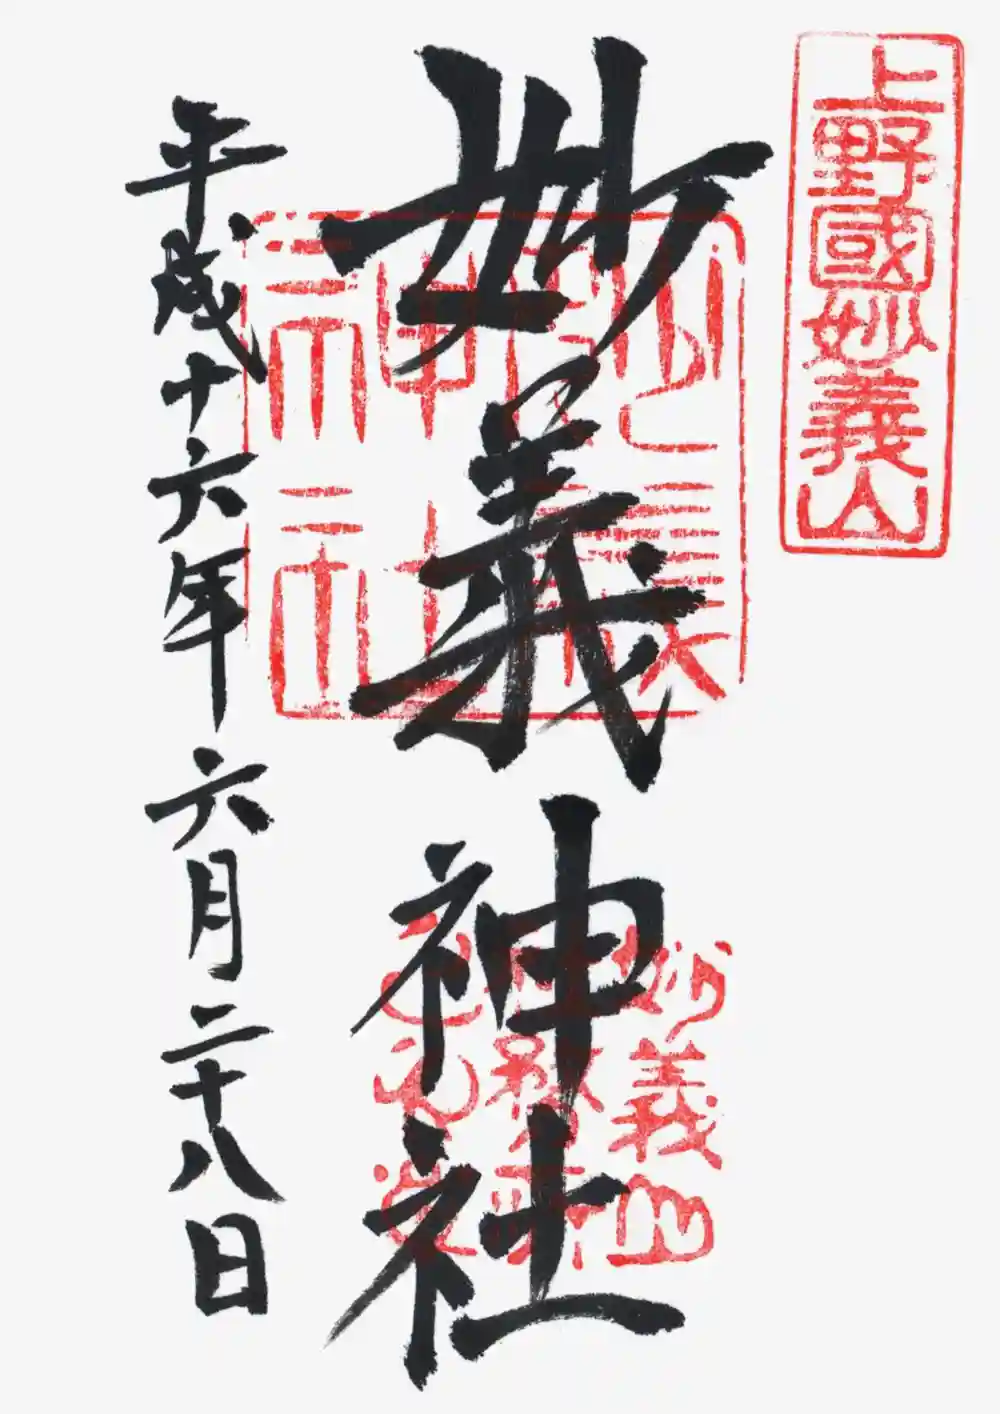 上野國妙義山
妙義神社
妙義
神社
妙義山
平成十六年六月二十八日